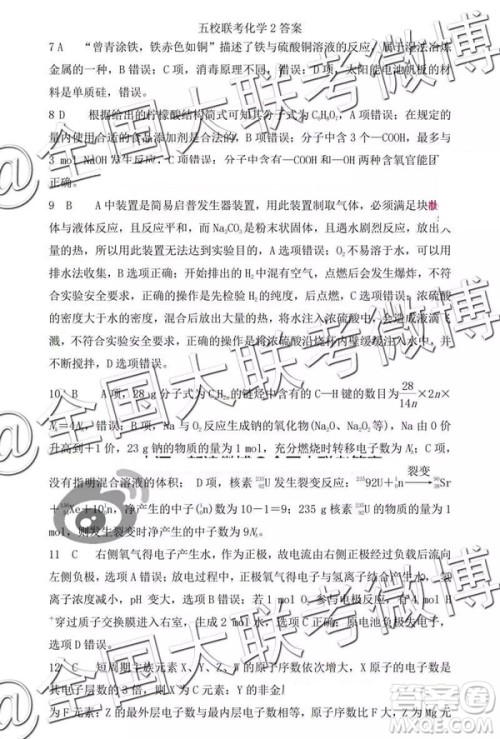 五校联考化学2答案
7 A “曾青涂铁，铁赤色如铜”描述了铁与硫酸铜溶液的反应，属于湿法冶炼
金属的一种，B 错误；C项，消毒原理不同，错误；D项，太阳能电池帆板的材
料是单质硅，错误。
8 D 根据给出的柠檬酸结构简式可知其分子式为C₆H₈O₇，A 项错误；在规定的
量内使用合适的食品添加剂是合法的，B项错误；分子中含3个—COOH，最多与
3 mol NaOH发生反应，C项错误；分子中含有—COOH和—OH两种含氧官能团
正确。
9 B A 中装置是简易启普发生器装置，用此装置制取气体，必须满足块状
体与液体反应，且反应平和，而Na₂CO₃是粉末状固体，且遇水剧烈反应，放出大
量的热，所以用此装置无法达到实验目的，A选项错误；O₂不易溶于水，可以用
排水法收集，B选项正确；开始排出的H₂中混有空气，点燃后会发生爆炸，不符
合实验安全要求，正确的操作是先检验H₂的纯度，后点燃，C选项错误；浓硫酸
的密度大于水的密度，且溶于水放出大量的热，将水注入浓硫酸中，会造成液滴飞
溅，不符合操作要求，正确的操作是将浓硫酸沿烧杯内壁缓缓注入水中，并
不断搅拌，D选项错误。
10 B A项，28 g分子式为CₙH₂ₙ的链烃中含有的C—H键的数目为28/14n×2n×
Nₐ=4Nₐ，错误；B项，Na与O₂反应生成钠的氧化物（Na₂O、Na₂O₂等），Na由0价
升高到+1价，23 g钠的物质的量为1 mol，充分燃烧时转移电子数为
没有指明混合溶液的体积； D项，核素²³⁵₉₂U发生裂变反应：²³⁵₉₂U+¹₀n 裂变→⁹⁰₃₈Sr
+¹³⁶₅₄Xe+10¹₀n，净产生的中子数为10-1=9；235 g核素²³⁵₉₂U的物质的量为
1 mol，则发生裂变时净产生的中子数为9Nₐ。
11 C 右侧氧气得电子产生水，作为正极，故电流由右侧正极经过负载后流向
左侧负极，选项A错误；放电过程中，正极氧气得电子与氢离子结合产生水，氢离
子浓度减小，pH变大，选项B错误；若1 mol O₂参与电极反应，有4 mol H
⁺穿过质子交换膜进入右室，生成2 mol水，选项C正确；原电池负极失电子，选
项D错误。
12 C 短周期主族元素X、Y、Z、W的原子序数依次增大，X原子的核外电子数是
其电子层数的3倍，则X为C元素；Y的非金
为F元素；Z的最外层电子数与最内层电子数相同，原子序数比F大，Z为Mg元
@全国大联考微博
@全国大联考微博
@全国大联考微博